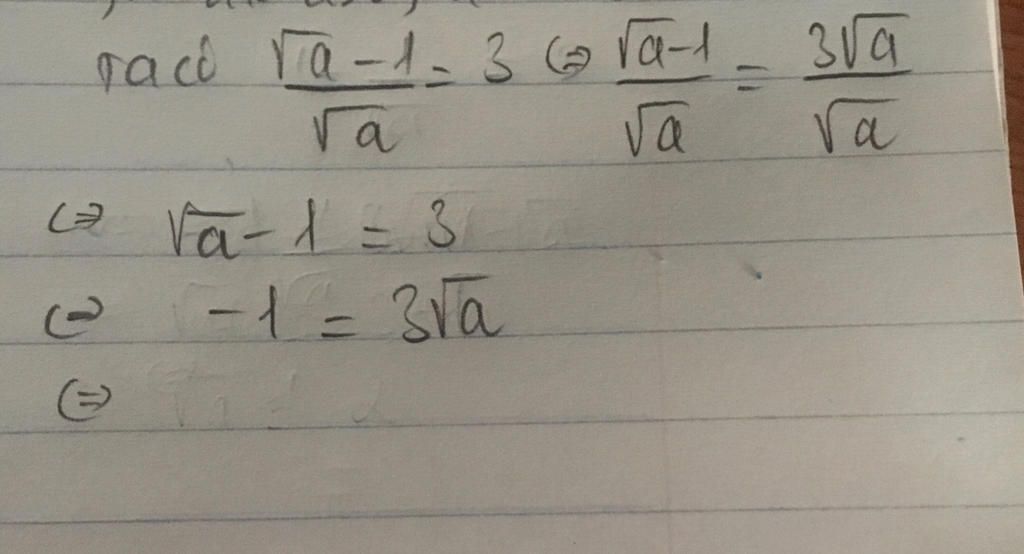 ta có (√a-1)/√a = 3 ⇔ (√a-1)/√a = 3√a/√a
⇔ √a - 1 = 3
⇔ -1 = 3√a
⇔